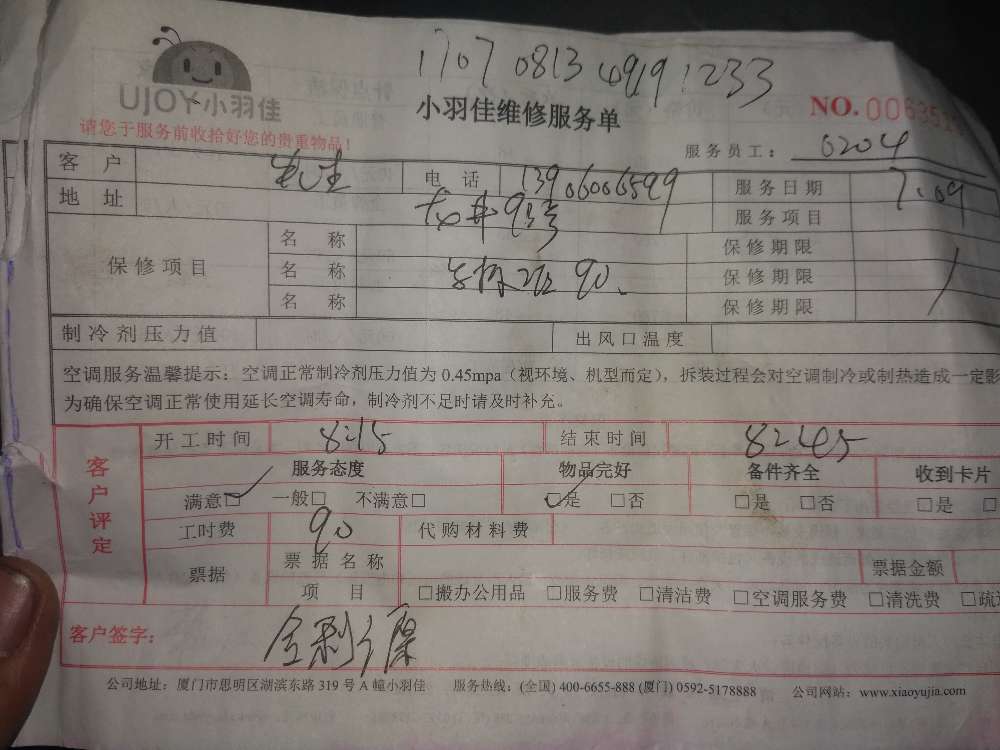 17070813 0919 1233
UJOY小羽佳
小羽佳维修服务单
NO.
请您于服务前收拾好您的贵重物品!
服务员工: 0204
客 户 电 话 13906006599 服务日期 7.09
地 址 龙井93号 服务项目
保修项目 名 称 保修期限
名 称 90 保修期限 /
名 称 保修期限
制冷剂压力值 出风口温度
空调服务温馨提示:空调正常制冷剂压力值为 0.45mpa(视环境、机型而定),拆装过程会对空调制冷或制热造成一定影
为确保空调正常使用延长空调寿命,制冷剂不足时请及时补充。
客户评定
开工时间 8:15 结束时间 8:45
服务态度 物品完好 备件齐全 收到卡片
满意☑ 一般□ 不满意□ ☑是 □否 □是 □否 □是 □
工时费 90 代购材料费
票据 票据名称 票据金额
项 目 □搬办公用品 □服务费 □清洁费 □空调服务费 □清洗费 □疏
客户签字:
公司地址:厦门市思明区湖滨东路 319 号 A 幢小羽佳 服务热线:(全国) 400-6655-888 (厦门) 0592-5178888 公司网站:www.xiaoyujia.com